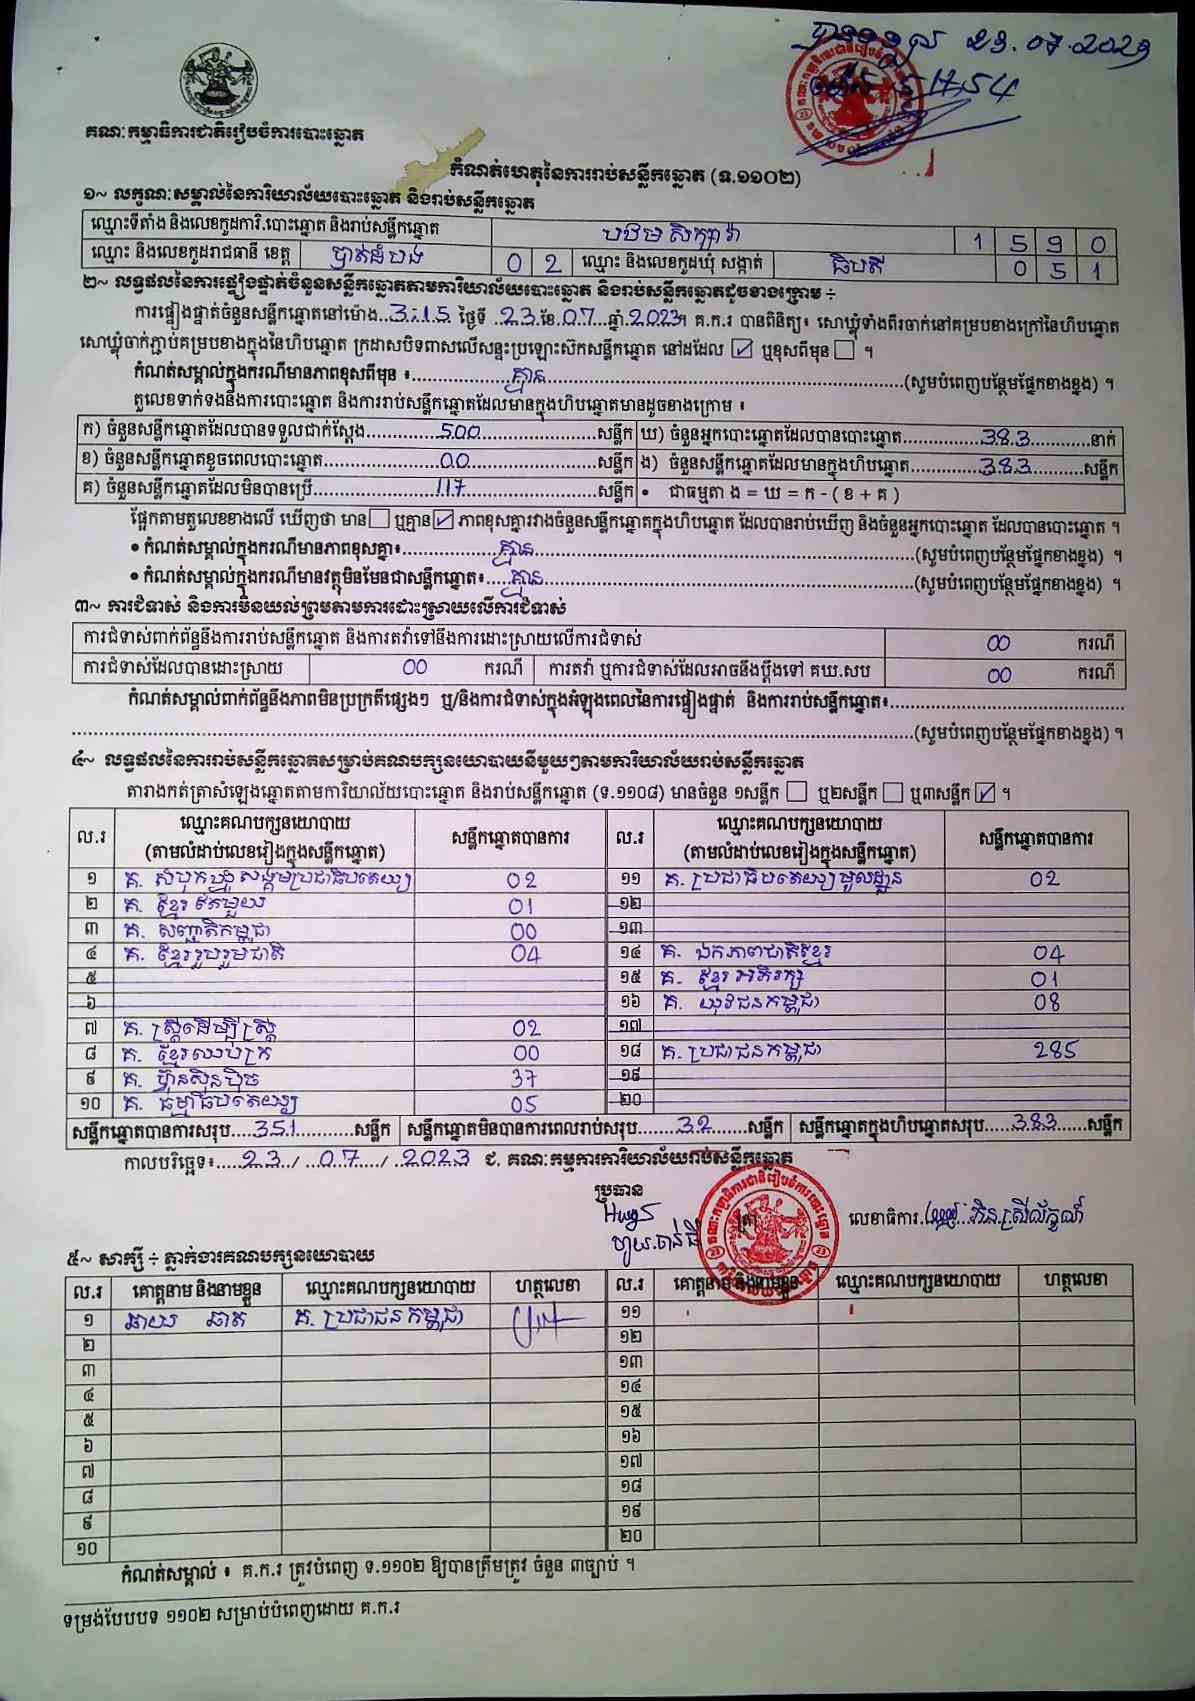 បានទទួល 23.07.2023
ម៉ោង 5:54
គណៈកម្មាធិការជាតិរៀបចំការបោះឆ្នោត
កំណត់ហេតុនៃការរាប់សន្លឹកឆ្នោត (ទ.១១០២)
១~ លក្ខណៈសម្គាល់នៃការិយាល័យបោះឆ្នោត និងរាប់សន្លឹកឆ្នោត
ឈ្មោះទីតាំង និងលេខកូដការិ.បោះឆ្នោត និងរាប់សន្លឹកឆ្នោត បឋមសិក្សាវ៉ា 1 5 9 0
ឈ្មោះ និងលេខកូដរាជធានី ខេត្ត បាត់ដំបង 0 2 ឈ្មោះ និងលេខកូដឃុំ សង្កាត់ ធិបតី 0 5 1
២~ លទ្ធផលនៃការផ្ទៀងផ្ទាត់ចំនួនសន្លឹកឆ្នោតតាមការិយាល័យបោះឆ្នោត និងរាប់សន្លឹកឆ្នោតដូចខាងក្រោម ÷
ការផ្ទៀងផ្ទាត់ចំនួនសន្លឹកឆ្នោតនៅម៉ោង..3:15 ថ្ងៃទី ..23.ខែ.07...ឆ្នាំ.2023។ គ.ក.រ បានពិនិត្យ៖ សោឃ្លុំទាំងពីរចាក់នៅគម្របខាងក្រៅនៃហិបឆ្នោត
សោឃ្លុំចាក់ភ្ជាប់គម្របខាងក្នុងនៃហិបឆ្នោត ក្រដាសបិទពាសលើសន្ទះប្រឡោះស៊កសន្លឹកឆ្នោត នៅដដែល ☑ ឬខុសពីមុន ☐ ។
កំណត់សម្គាល់ក្នុងករណីមានភាពខុសពីមុន ៖..............គ្មាន..............(សូមបំពេញបន្ថែមផ្នែកខាងខ្នង) ។
តួលេខទាក់ទងនឹងការបោះឆ្នោត និងការរាប់សន្លឹកឆ្នោតដែលមានក្នុងហិបឆ្នោតមានដូចខាងក្រោម ៖
ក) ចំនួនសន្លឹកឆ្នោតដែលបានទទួលជាក់ស្ដែង..........500..........សន្លឹក ឃ) ចំនួនអ្នកបោះឆ្នោតដែលបានបោះឆ្នោត..........383..........នាក់
ខ) ចំនួនសន្លឹកឆ្នោតខូចពេលបោះឆ្នោត..........00..........សន្លឹក ង) ចំនួនសន្លឹកឆ្នោតដែលមានក្នុងហិបឆ្នោត..........383..........សន្លឹក
គ) ចំនួនសន្លឹកឆ្នោតដែលមិនបានប្រើ..........117..........សន្លឹក • ជាធម្មតា ង = ឃ = ក - ( ខ + គ )
ផ្អែកតាមតួលេខខាងលើ ឃើញថា មាន ☐ ឬគ្មាន ☑ ភាពខុសគ្នារវាងចំនួនសន្លឹកឆ្នោតក្នុងហិបឆ្នោត ដែលបានរាប់ឃើញ និងចំនួនអ្នកបោះឆ្នោត ដែលបានបោះឆ្នោត ។
• កំណត់សម្គាល់ក្នុងករណីមានភាពខុសគ្នា៖..........គ្មាន..........(សូមបំពេញបន្ថែមផ្នែកខាងខ្នង) ។
• កំណត់សម្គាល់ក្នុងករណីមានវត្ថុមិនមែនជាសន្លឹកឆ្នោត៖.....គ្មាន..........(សូមបំពេញបន្ថែមផ្នែកខាងខ្នង) ។
៣~ ការជំទាស់ និងការមិនយល់ព្រមតាមការដោះស្រាយលើការជំទាស់
ការជំទាស់ពាក់ព័ន្ធនឹងការរាប់សន្លឹកឆ្នោត និងការតវ៉ាទៅនឹងការដោះស្រាយលើការជំទាស់ 00 ករណី
ការជំទាស់ដែលបានដោះស្រាយ 00 ករណី ការតវ៉ា ឬការជំទាស់ដែលអាចនឹងប្ដឹងទៅ គឃ.សប 00 ករណី
កំណត់សម្គាល់ពាក់ព័ន្ធនឹងភាពមិនប្រក្រតីផ្សេងៗ ឬ/និងការជំទាស់ក្នុងអំឡុងពេលនៃការផ្ទៀងផ្ទាត់ និងការរាប់សន្លឹកឆ្នោត៖..........
..........(សូមបំពេញបន្ថែមផ្នែកខាងខ្នង) ។
៤~ លទ្ធផលនៃការរាប់សន្លឹកឆ្នោតសម្រាប់គណបក្សនយោបាយនីមួយៗតាមការិយាល័យរាប់សន្លឹកឆ្នោត
តារាងកត់ត្រាសំឡេងឆ្នោតតាមការិយាល័យបោះឆ្នោត និងរាប់សន្លឹកឆ្នោត (ទ.១១០៨) មានចំនួន ១សន្លឹក ☐ ឬ២សន្លឹក ☐ ឬ៣សន្លឹក ☑ ។
ល.រ ឈ្មោះគណបក្សនយោបាយ (តាមលំដាប់លេខរៀងក្នុងសន្លឹកឆ្នោត) សន្លឹកឆ្នោតបានការ ល.រ ឈ្មោះគណបក្សនយោបាយ (តាមលំដាប់លេខរៀងក្នុងសន្លឹកឆ្នោត) សន្លឹកឆ្នោតបានការ
១ គ. សំបុកឃ្មុំសង្គមប្រជាធិបតេយ្យ 02 ១១ គ. ប្រជាធិបតេយ្យមូលដ្ឋាន 02
២ គ. ខ្មែរតែមួយ 01 ១២
៣ គ. សញ្ជាតិកម្ពុជា 00 ១៣
៤ គ. ខ្មែររួបរួមជាតិ 04 ១៤ គ. ឯកភាពជាតិខ្មែរ 04
៥ ១៥ គ. ខ្មែរអភិរក្ស 01
៦ ១៦ គ. យុវជនកម្ពុជា 08
៧ គ. ស្ត្រីដើម្បីស្ត្រី 02 ១៧
៨ គ. ខ្មែរឈប់ក្រ 00 ១៨ គ. ប្រជាជនកម្ពុជា 285
៩ គ. ហ៊្វុនស៊ិនប៉ិច 37 ១៩
១០ គ. ធម្មាធិបតេយ្យ 05 ២០
សន្លឹកឆ្នោតបានការសរុប....351..........សន្លឹក សន្លឹកឆ្នោតមិនបានការពេលរាប់សរុប......32......សន្លឹក សន្លឹកឆ្នោតក្នុងហិបឆ្នោតសរុប....383.....សន្លឹក
កាលបរិច្ឆេទ៖.....23../...07..../...2023 ជ. គណៈកម្មការការិយាល័យរាប់សន្លឹកឆ្នោត
ប្រធាន
ហួយ.ចាន់ធី លេខាធិការ. ភិន.ស្រីល័ក្ខណ៍
៥~ សាក្សី ÷ ភ្នាក់ងារគណបក្សនយោបាយ
ល.រ គោត្តនាម និងនាមខ្លួន ឈ្មោះគណបក្សនយោបាយ ហត្ថលេខា ល.រ គោត្តនាម និងនាមខ្លួន ឈ្មោះគណបក្សនយោបាយ ហត្ថលេខា
១ ឆាយ ឆាត គ. ប្រជាជនកម្ពុជា ១១
២ ១២
៣ ១៣
៤ ១៤
៥ ១៥
៦ ១៦
៧ ១៧
៨ ១៨
៩ ១៩
១០ ២០
កំណត់សម្គាល់ ៖ គ.ក.រ ត្រូវបំពេញ ទ.១១០២ ឱ្យបានត្រឹមត្រូវ ចំនួន ៣ច្បាប់ ។
ទម្រង់បែបបទ ១១០២ សម្រាប់បំពេញដោយ គ.ក.រ